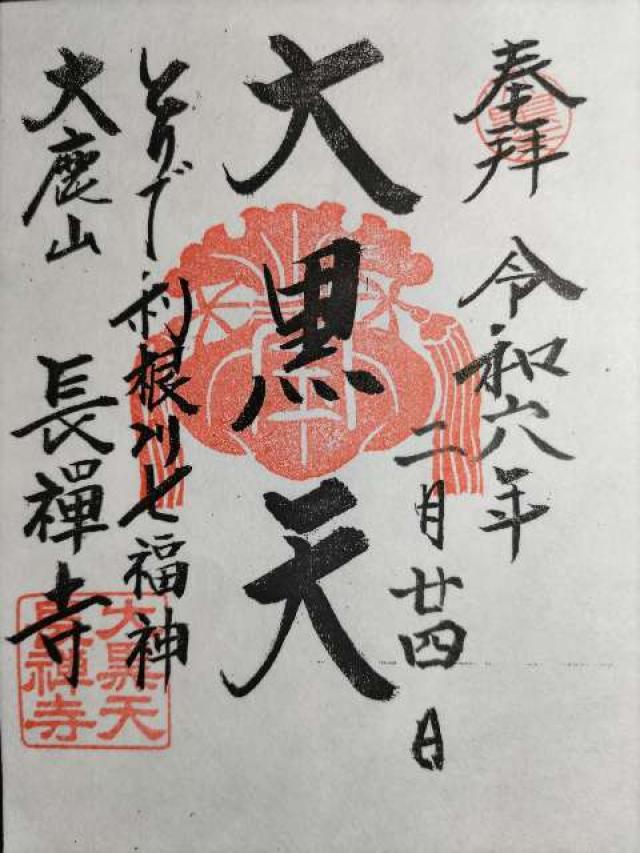 奉拝
令和六年
二月廿四日
大黒天
とりで利根川七福神
大鹿山 長禪寺
大黒天
長禅寺